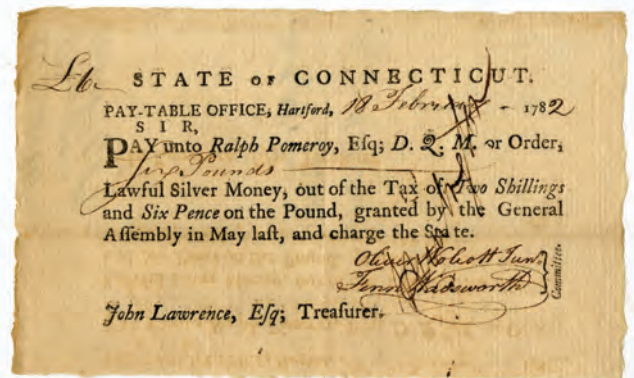 £6 STATE OF CONNECTICUT.
PAY-TABLE OFFICE, Hartford, 18 February 1782
SIR,
PAY unto Ralph Pomeroy, Esq; D. Q. M. or Order,
Six Pounds
Lawful Silver Money, out of the Tax of Two Shillings
and Six Pence on the Pound, granted by the General
Aſſembly in May laſt, and charge the State.
Oliver Wolcott Jun.
Fenn Wadsworth
Committee.
John Lawrence, Eſq; Treaſurer.